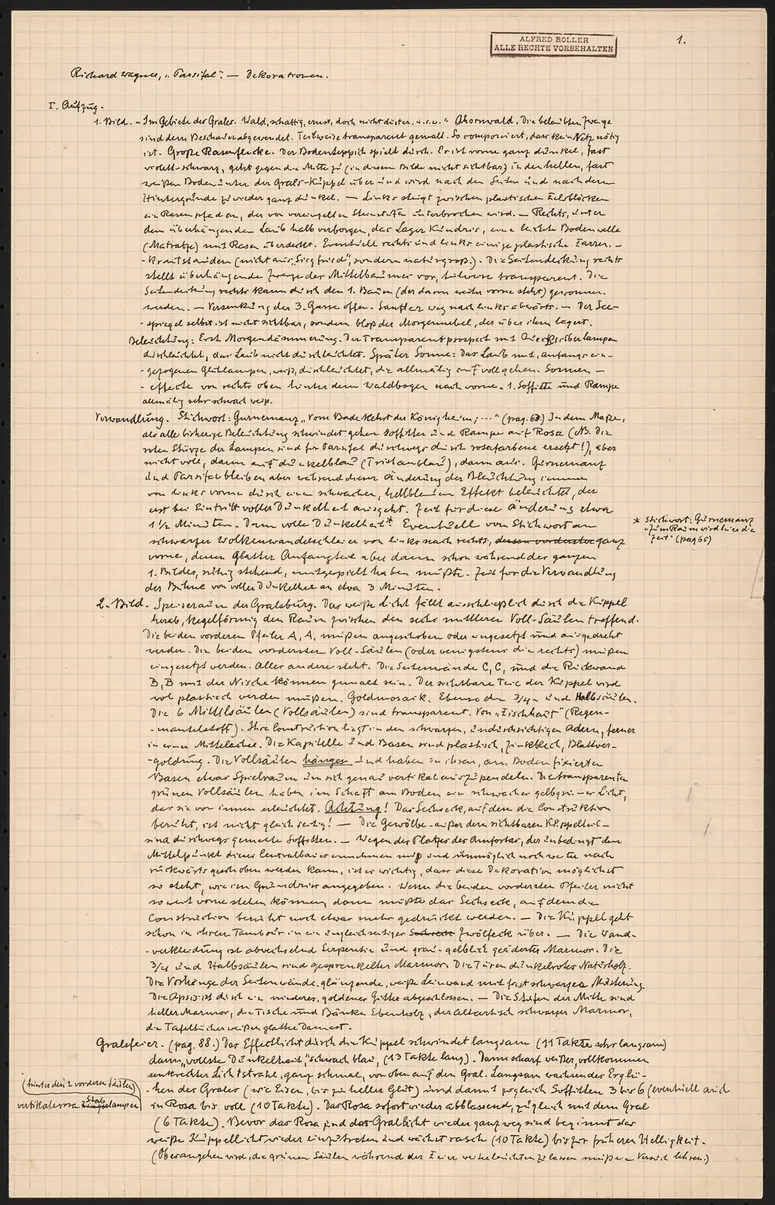 ALFRED ROLLER
ALLE RECHTE VORBEHALTEN
1.
Richard Wagner, „Parsifal". — Dekorationen.
I. Aufzug.
1. Bild. „Im Gebiete des Grales. Wald, schattig, ernst, doch nicht düster. u.s.w." Ahornwald. Die belaubten Zweige
sind dem Beschauer abgewendet. Teilweise transparent gemalt. So componiert, dass kein Netz nötig
ist. Große Rasenflecke. Der Bodenteppich spielt durch. Er ist vorne ganz dunkel, fast
violett-schwarz, geht gegen die Mitte zu (in diesem Bilde nicht sichtbar) in den hellen, fast
weißen Boden unter der Grals-Kuppel über und wird nach den Seiten und nach dem
Hintergrunde zu wieder ganz dunkel. — Links steigt zwischen plastischen Felsblöcken
ein Rasenpfad an, der von vereinzelten Steinstufen unterbrochen wird. — Rechts, unter
dem überhängenden Laub halb verborgen, das Lager Kundrys, eine leichte Bodenwelle
(Matratze) mit Rasen überdeckt. Eventuell rechts und links einige plastische Farren-
-krautstauden (nicht aus „Siegfried", sondern naturgroß). Die Seitendeckung rechts
stellt überhängende Zweige der Mittelbäume vor, teilweise transparent. Die
Seitendeckung rechts kann durch den 1. Baum (der dann weiter vorne steht) gewonnen
werden. — Versenkung der 3. Gasse offen. Sanfter Weg nach links abwärts. — Der See-
-spiegel selbst ist nicht sichtbar, sondern bloß der Morgennebel, der über ihm lagert.
Beleuchtung: Erst Morgendämmerung. Der Transparentprospect mit
durchleuchtet, das Laub nicht durchleuchtet. Später Sonne: Das Laub mit, anfangs ein-
-gezogenen Glühlampen, weiß, durchleuchtet, die allmälig auf voll gehen. Sonnen-
-effecte von rechts oben hinter dem Waldbogen nach vorne. 1. Soffitte und Rampe
allmälig sehr schwach weiß.
Verwandlung. Stichwort: Gurnemanz „Vom Bade kehrt der König heim; ...." (pag. 63) In dem Maße,
als alle bisherige Beleuchtung schwindet gehen Soffitten und Rampe auf Rosa (NB. Die
roten Stürze der Lampen sind für Parsifal durchwegs durch rosafarbene ersetzt!), aber
nicht voll, dann auf dunkelblau (Tristanblau), dann aus. Gurnemanz
und Parsifal bleiben aber während dieser Änderung der Bleuchtung immer
von links vorne durch einen schwachen, hellblauen Effekt beleuchtet, der
erst bei Eintritt voller Dunkelheit ausgeht. Zeit für diese Änderung etwa
1 1/2 Minuten. Dann volle Dunkelheit* Eventuell von Stichwort an
schwarzer Wolkenwandelschleier von links nach rechts, dessen vorderster ganz
vorne, dessen glatter Anfangsteil aber dann schon während des ganzen
1. Bildes, ruhig stehend, mitgespielt haben müßte. Zeit für die Verwandlung
der Bühne von voller Dunkelheit an etwa 3 Minuten.
* Stichwort: Gurnemanz
„zum Raum wird hier die
Zeit" (pag 65)
2. Bild. Speiseraum der Gralsburg. Das weiße Licht fällt ausschließlich durch die Kuppel
herab, kegelförmig den Raum zwischen den sechs mittleren Voll-Säulen treffend.
Die beiden vorderen Pfeiler A, A, müßen angeschoben oder eingesetzt und ausgedreht
werden. Die beiden vordersten Voll-Säulen (oder wenigstens die rechts) müßen
eingesetzt werden. Alles andere steht. Die Seitenwände C, C, und die Rückwand
B, B mit der Nische können gemalt sein. Der sichtbare Teil der Kuppel wird
wol plastisch werden müßen. Goldmosaik. Ebenso die 3/4- und Halbsäulen.
Die 6 Mittelsäulen (Vollsäulen) sind transparent. Von „Tischhaut" (Regen-
-mantelstoff). Ihre Construction liegt in den schwarzen, undurchsichtigen Adern, ferner
in einer Mittelachse. Die Kapitelle und Basen sind plastisch, Zinkblech, Blattver-
-goldung. Die Vollsäulen hängen und haben in ihren, am Boden fixierten
Basen etwas Spielraum um sich genau vertikal auszupendeln. Die transparenten
grünen Vollsäulen haben im Schaft am Boden ein schwaches gelbgrünes Licht,
das sie von innen erleuchtet. Achtung! Das Sechseck, auf dem die Construktion
beruht, ist nicht gleichseitig! — Die Gewölbe - außer dem sichtbaren Kuppelteil -
sind durchwegs gemalte Soffitten. — Wegen des Platzes des Amfortas, der unbedingt den
Mittelpunkt dieses Centralbaues einnehmen muß und unmöglich noch weiter nach
rückwärts geschoben werden kann, ist es wichtig, dass diese Dekoration möglichst
so steht, wie im Grundriss angegeben. Wenn die beiden vordersten Pfeiler nicht
so weit vorne stehen können, dann müßte das Sechseck, auf dem die
Construction beruht noch etwas mehr gedrückt werden. — Die Kuppel geht
schon in ihrem Tambour in ein ungleichseitiges Sechseck Zwölfeck über. — Die Wand-
-verkleidung ist abwechselnd Serpentin und grau-gelblich geäderter Marmor. Die
3/4 und Halbsäulen sind gesprenkelter Marmor. Die Türen dunkelrotes Naturholz.
Die Vorhänge der Seitenwände, glänzende, weiße Leinwand mit fast schwarzer Musterung.
Die Apsis ist durch ein niederes, goldenes Gitter abgeschlossen. — Die Stufen der Mitte sind
heller Marmor, die Tische und Bänke Ebenholz, der Altartisch schwarzer Marmor,
die Tafeltücher weißer glatter Damast.
Gralsfeier. (pag. 88.) Das Effectlicht durch die Kuppel schwindet langsam (11 Takte sehr langsam)
dann „vollste Dunkelheit", schwach blau, (13 Takte lang). Dann scharf weißer, vollkommen
senkrechter Lichtstrahl, ganz schmal, von oben auf den Gral. Langsam wachsendes Erglü-
-hen des Grales (wie Eisen, bis zu heller Glut) und damit zugleich Soffitten 3 bis 6 (eventuell auch
(hinter den 2 vorderen Säulen)
vertikale rosa Stablampen
in Rosa bis voll (10 Takte). Das Rosa sofort wieder abblassend, zugleich mit dem Gral
(6 Takte). Bevor das Rosa und das Grallicht wieder ganz weg sind beginnt das
weiße Kuppellicht wieder einzutreten und wächst rasch (10 Takte) bis zur früheren Helligkeit.
(Ob es angehen wird, die grünen Säulen während der Feier zu lassen müßen Versuche lehren.)